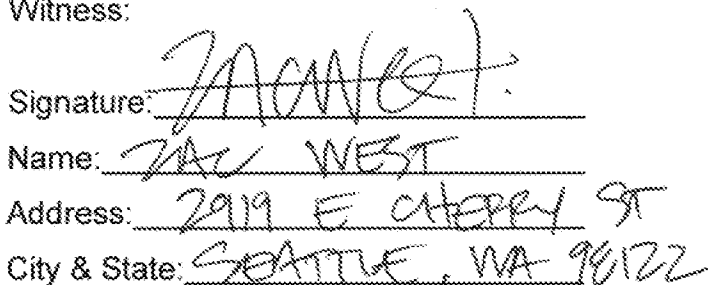 Witness:
Signature: Zac West
Name: ZAC WEST
Address: 2919 E CHERRY ST
City & State: SEATTLE, WA 98122